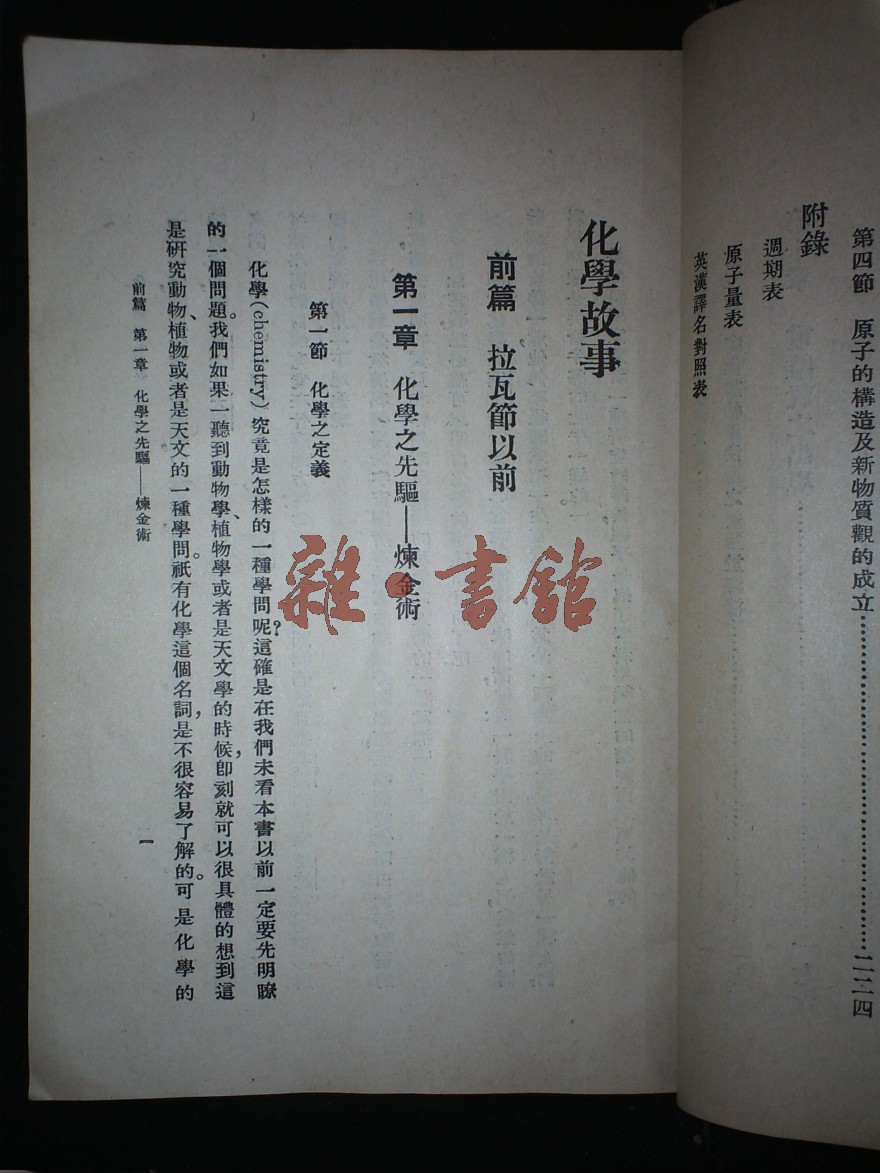 第四節 原子的構造及新物質觀的成立……………………二二四
附錄
週期表
原子量表
英漢譯名對照表
化學故事
前篇 拉瓦節以前
第一章 化學之先驅——煉金術
第一節 化學之定義
化學(chemistry)究竟是怎樣的一種學問呢?這確是在我們未看本書以前一定要先明瞭
的一個問題。我們如果一聽到動物學、植物學或者是天文學的時候,卽刻就可以很具體的想到這
是研究動物、植物或者是天文的一種學問。祇有化學這個名詞,是不很容易了解的。可是化學的
前篇 第一章 化學之先驅——煉金術
一
雜·書館